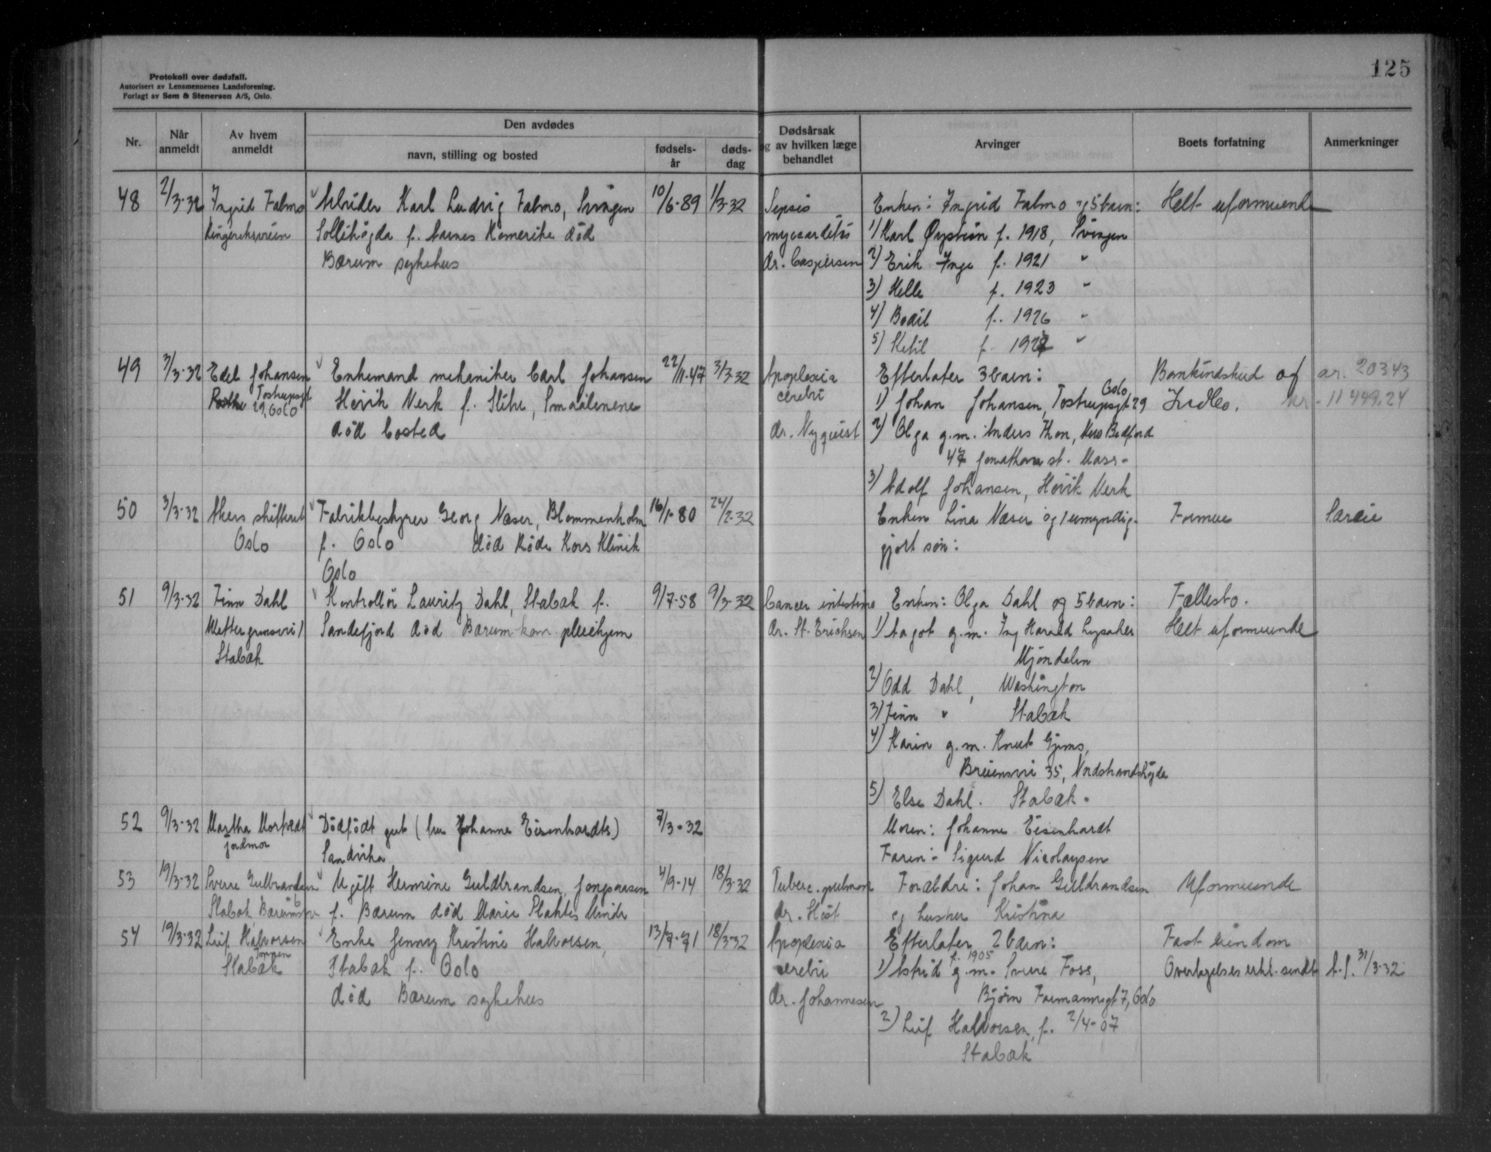 125
Protokoll over dødsfall.
Autorisert av Lensmennenes Landsforening.
Forlagt av Sem & Stenersen A/S, Oslo.
Nr.
Når anmeldt
Av hvem anmeldt
Den avdødes
navn, stilling og bosted
fødselsår
dødsdag
Dødsårsak og av hvilken læge behandlet
Arvinger
Boets forfatning
Anmerkninger
48 2/3-32 Ingrid Falmo Arbeider Karl Ludvig Falmo, Svingen 10/6-89 1/3-32 Sepsis Enken: Ingrid Falmo og 5 barn: Helt uformuende
Ringeriksveien Sollihøgda f. Aurnes Romerike død myocarditis 1) Karl Øystein f. 1918, Svingen
Bærum sykehus dr. Caspersen 2) Erik Inge f. 1921 "
3) Helle f. 1923 "
4) Bodil f. 1926 "
5) Ketil f. "
49 3/3-32 Edel Johansen Enkemand mekaniker Carl Johansen 22/11-47 3/3-32 Apoplexia Efterlater 3 barn: Bankinnskud af ar. 20343
Tostrupsgt 29, Oslo Høvik Verk f. Smaalenene cerebri 1) Johan Johansen, Tostrupsgt 29 Oslo kr. 11449.24
død bosted dr. Nyquist 2) Olga g.m. Anders Thon, New Bedford
47 Jonathan st. Mass-
3) Adolf Johansen, Høvik Verk
50 3/3-32 Akers skifterett Fabrikbestyrer Georg Næser, Blommenholm 16/1-80 24/2-32 Enken Lina Næser og 1 umyndig- Formue Særeie
Oslo f. Oslo død Røde Kors Klinik gjort søn:
Oslo
51 9/3-32 Finn Dahl Kontrollør Lauritz Dahl, Stabæk f. 9/7-58 9/3-32 Cancer intestine Enken: Olga Dahl og 5 barn: Fællesbo.
Sandefjord død Bærum kom. pleiehjem dr. St. Erichsen 1) Aagot g.m. Ing Harald Lysaker Helt uformuende
Stabæk Mjøndalen
2) Odd Dahl, Washington
3) Finn " Stabæk
4) Karin g.m. Knut Gjems,
Breiensvei 35, Nordstrandshøgda
5) Else Dahl. Stabæk.
52 9/3-32 Martha Mortvedt Dødfødt gut (bur Johanne Eisenhardts) 7/3-32 Moren: Johanne Eisenhardt
jordmor Sandvika Faren: Sigurd Nicolaysen
53 19/3-32 Sverre Gulbrandsen Ugift Hermine Guldbrandsen, Jongsaasen 4/9-14 18/3-32 Tuberc. pulmon Forældre: Johan Guldbrandsen Uformuende
Stabæk f. Bærum død Marie Plahtes Minde dr. Høst og hustru Kristina
54 19/3-32 Leif Halvorsen Enke Jenny Kristine Halvorsen, 13/7-71 18/3-32 Apoplexia Efterlater 2 barn: Fast eiendom
Stabæk Stabæk f. Oslo cerebri 1) Astrid f. 1905 g.m. Sverre Foss, Overtagelses erkl. sendt b.f. 31/3-32
død Bærum sykehus dr. Johannesen Bjørn Farmannsgt 7, Oslo
2) Leif Halvorsen, f. 2/4-07
Stabæk